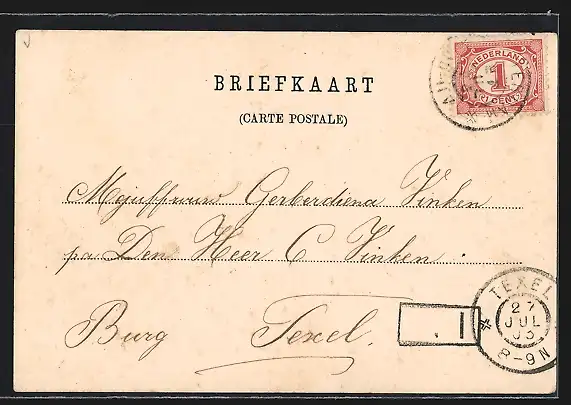 BRIEFKAART
(CARTE POSTALE)
NEDERLAND
1
CENT
Mejuffrouw Gerberdiena Vinken
pa Den Heer C Vinken
Burg Texel.
TEXEL
27
JUL
03
8-9N